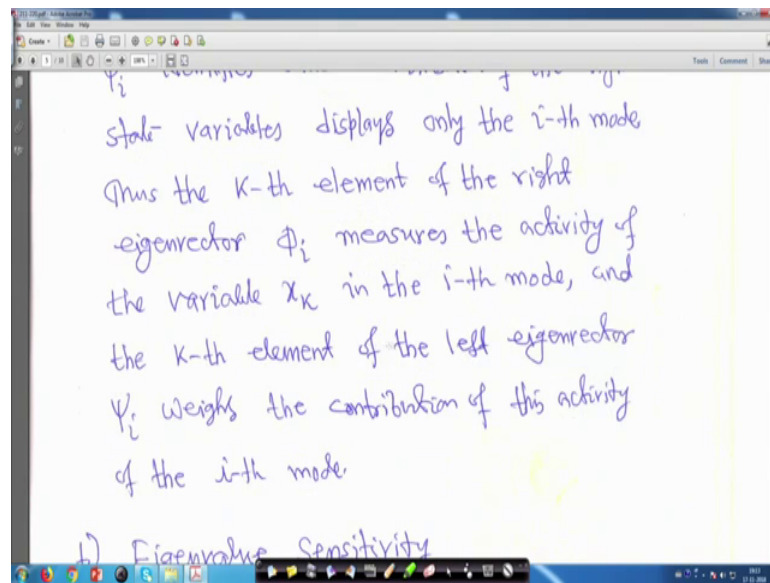 211-220.pdf - Adobe Acrobat Pro
File Edit View Window Help
Create
Tools Comment
state variables displays only the i-th mode
Thus the K-th element of the right
eigenvector Φi measures the activity of
the variable xK in the i-th mode, and
the K-th element of the left eigenvector
Ψi weighs the contribution of this activity
of the i-th mode.
b) Eigenvalue Sensitivity